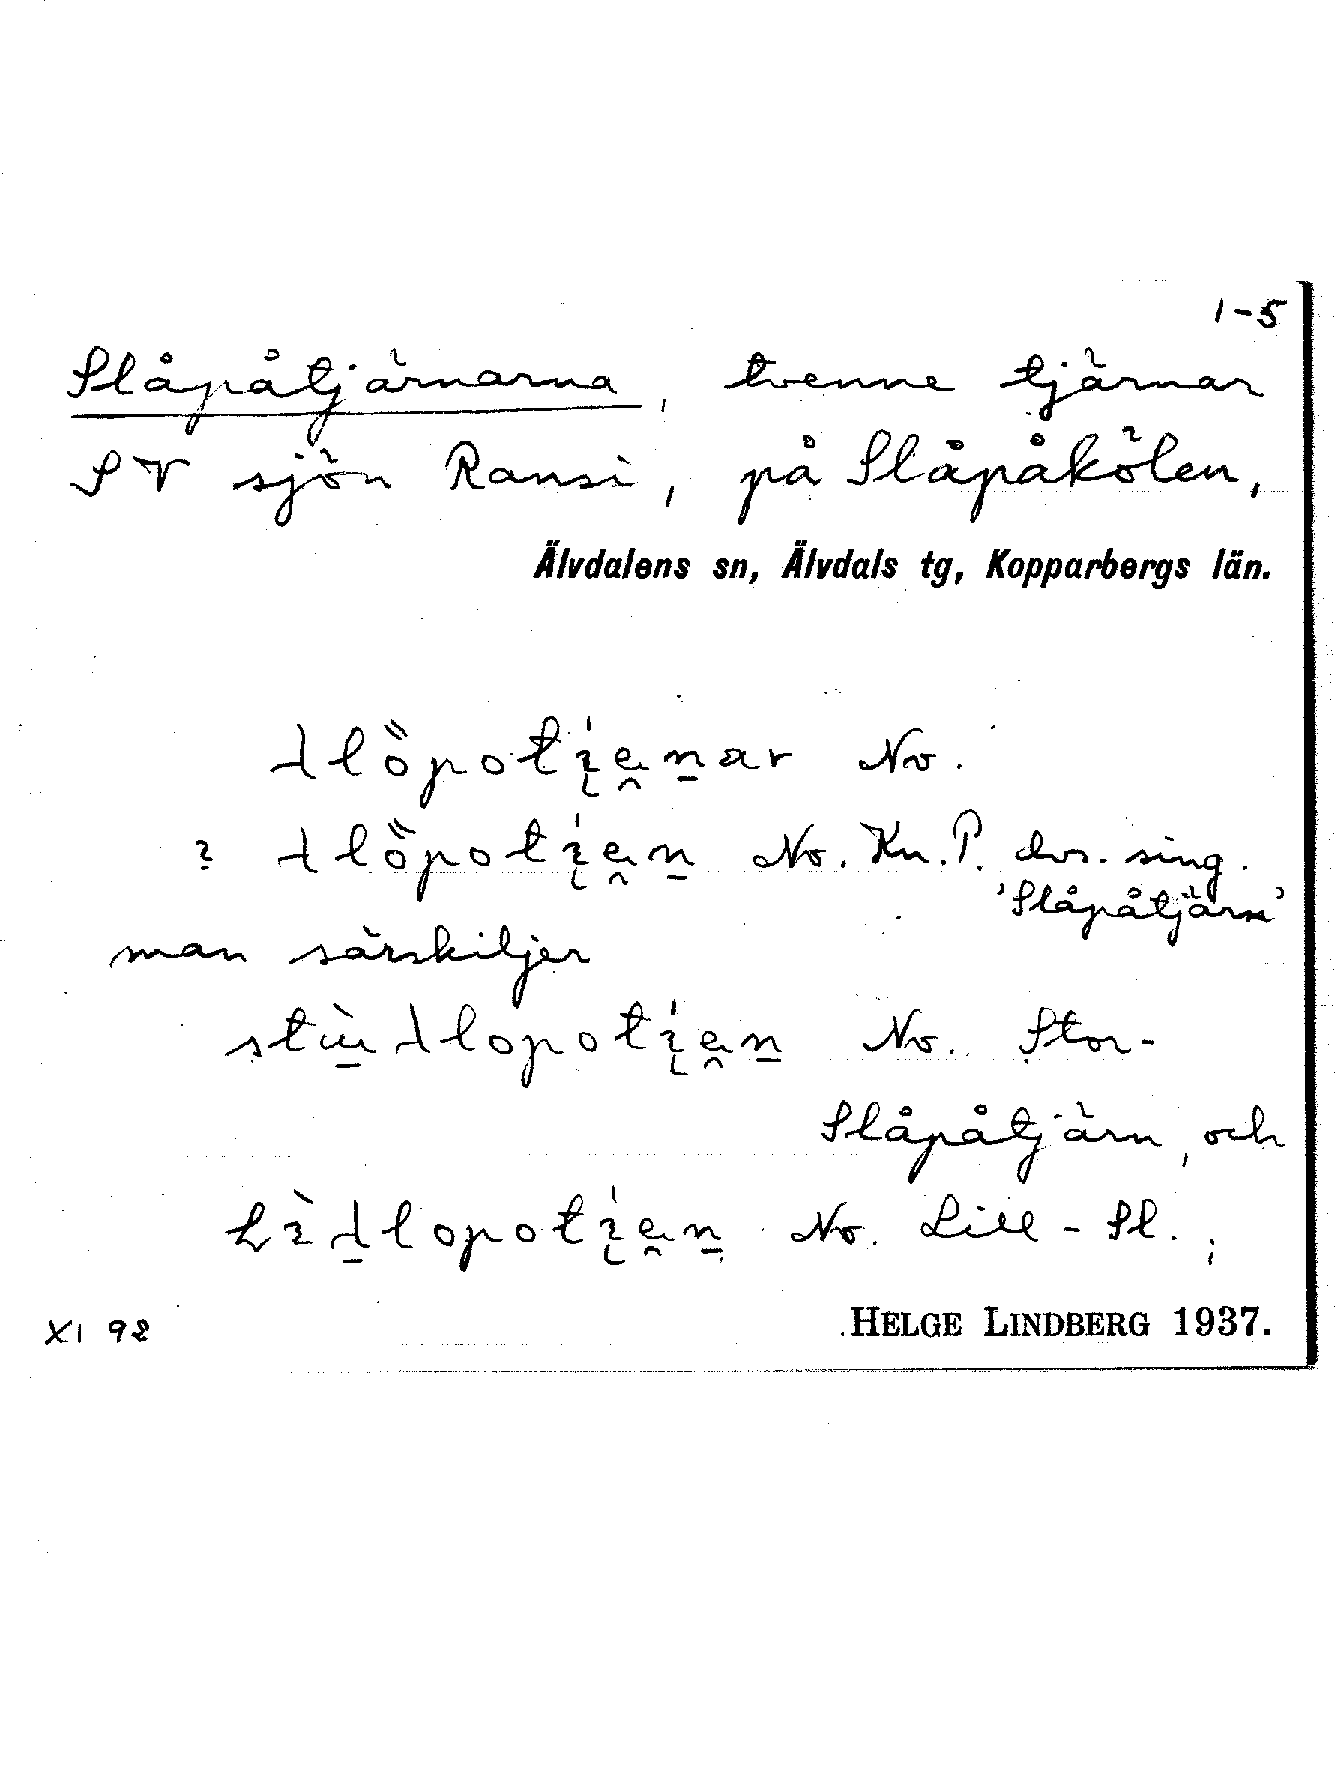 1-5
Slåpåtjärnarna, tvenne tjärnar
SV sjön Ransi, på Slåpåkölen,
Älvdalens sn, Älvdals tg, Kopparbergs län.
No.
? No. Kn. P. dvs. sing.
'Slåpåtjärn'
man särskiljer
No. Stor-
Slåpåtjärn, och
No. Lill-Sl.;
XI 92 HELGE LINDBERG 1937.